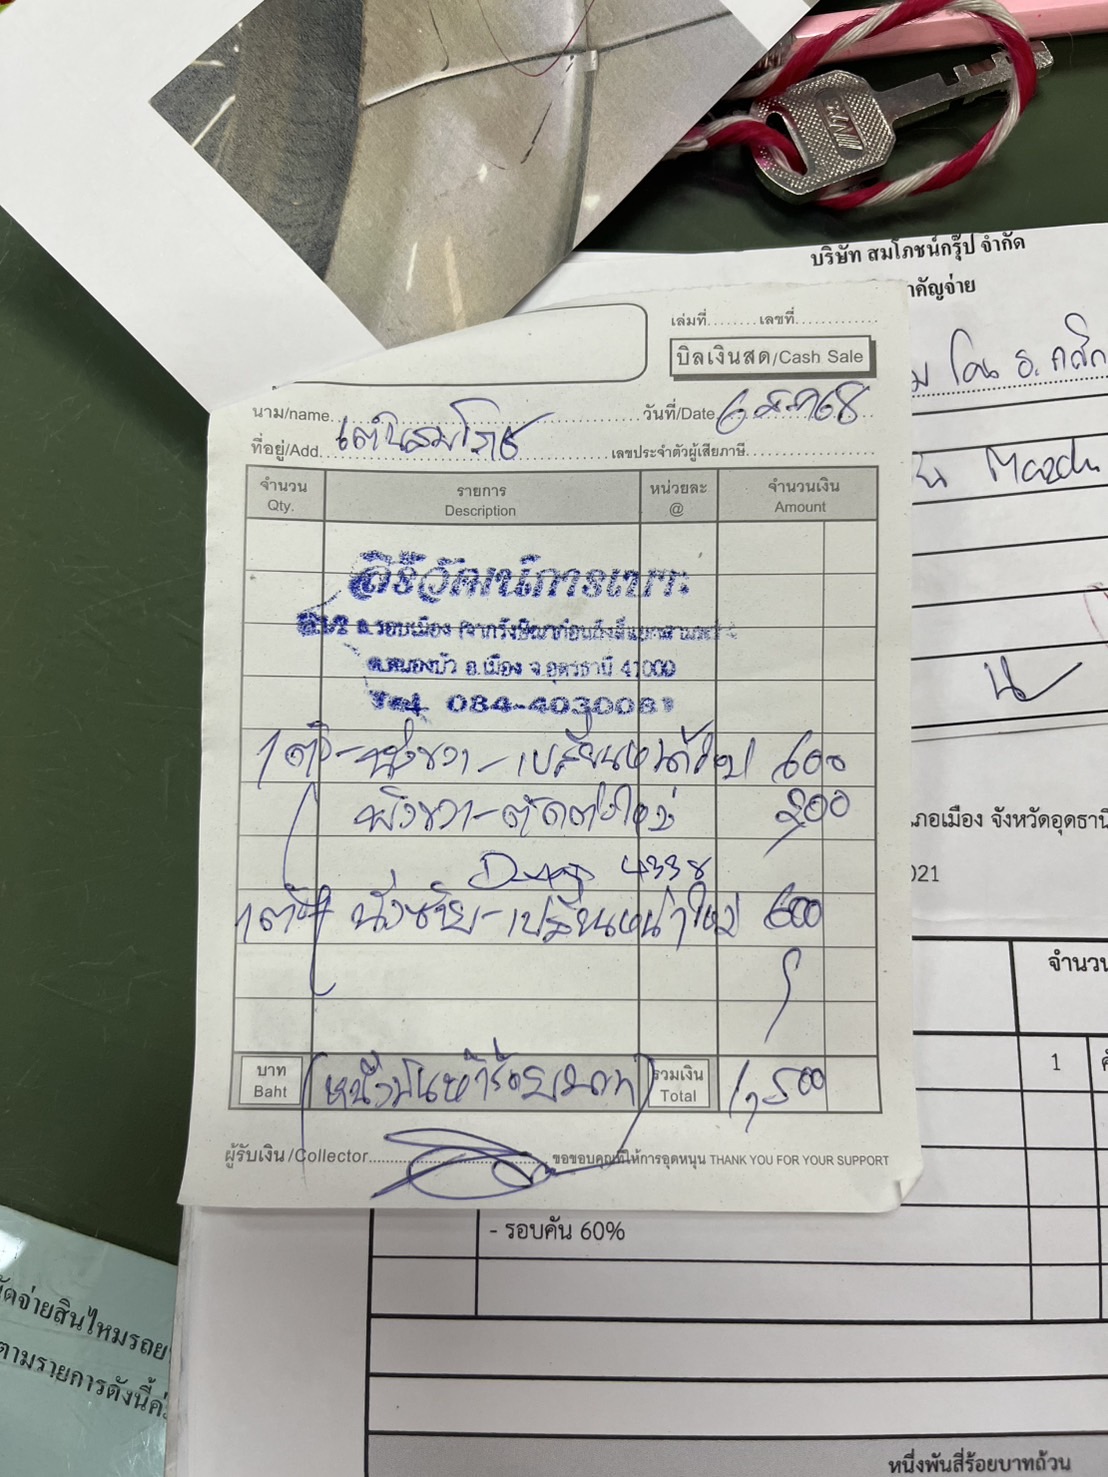 บริษัท สมโภชน์กรุ๊ป จำกัด
าคัญจ่าย
เล่มที่ เลขที่
บิลเงินสด/Cash Sale
นาม/name เต๊นสมโภช วันที่/Date
ที่อยู่/Add. เลขประจำตัวผู้เสียภาษี
จำนวน รายการ หน่วยละ จำนวนเงิน
Qty. Description @ Amount
การเบาะ
ถ.รอบเมือง
ต.หนองบัว อ.เมือง จ.อุดรธานี 41000
Tel. 084-4030081
1 ตัว - นั่งขวา - เปลี่ยนหน้าใหม่ 600
พิงขวา - ตัดต่อใหม่ 300
4338
1 ตัว นั่งซ้าย - เปลี่ยนหน้าใหม่ 600
บาท (หนึ่งพันห้าร้อยบาท) รวมเงิน 1,500
Baht Total
ผู้รับเงิน/Collector ขอขอบคุณที่ให้การอุดหนุน THANK YOU FOR YOUR SUPPORT
ภอเมือง จังหวัดอุดธานี
021
จำนวน
1
- รอบคัน 60%
ัดจ่ายสินไหมรอย
ตามรายการดังนี้ค่
หนึ่งพันสี่ร้อยบาทถ้วน